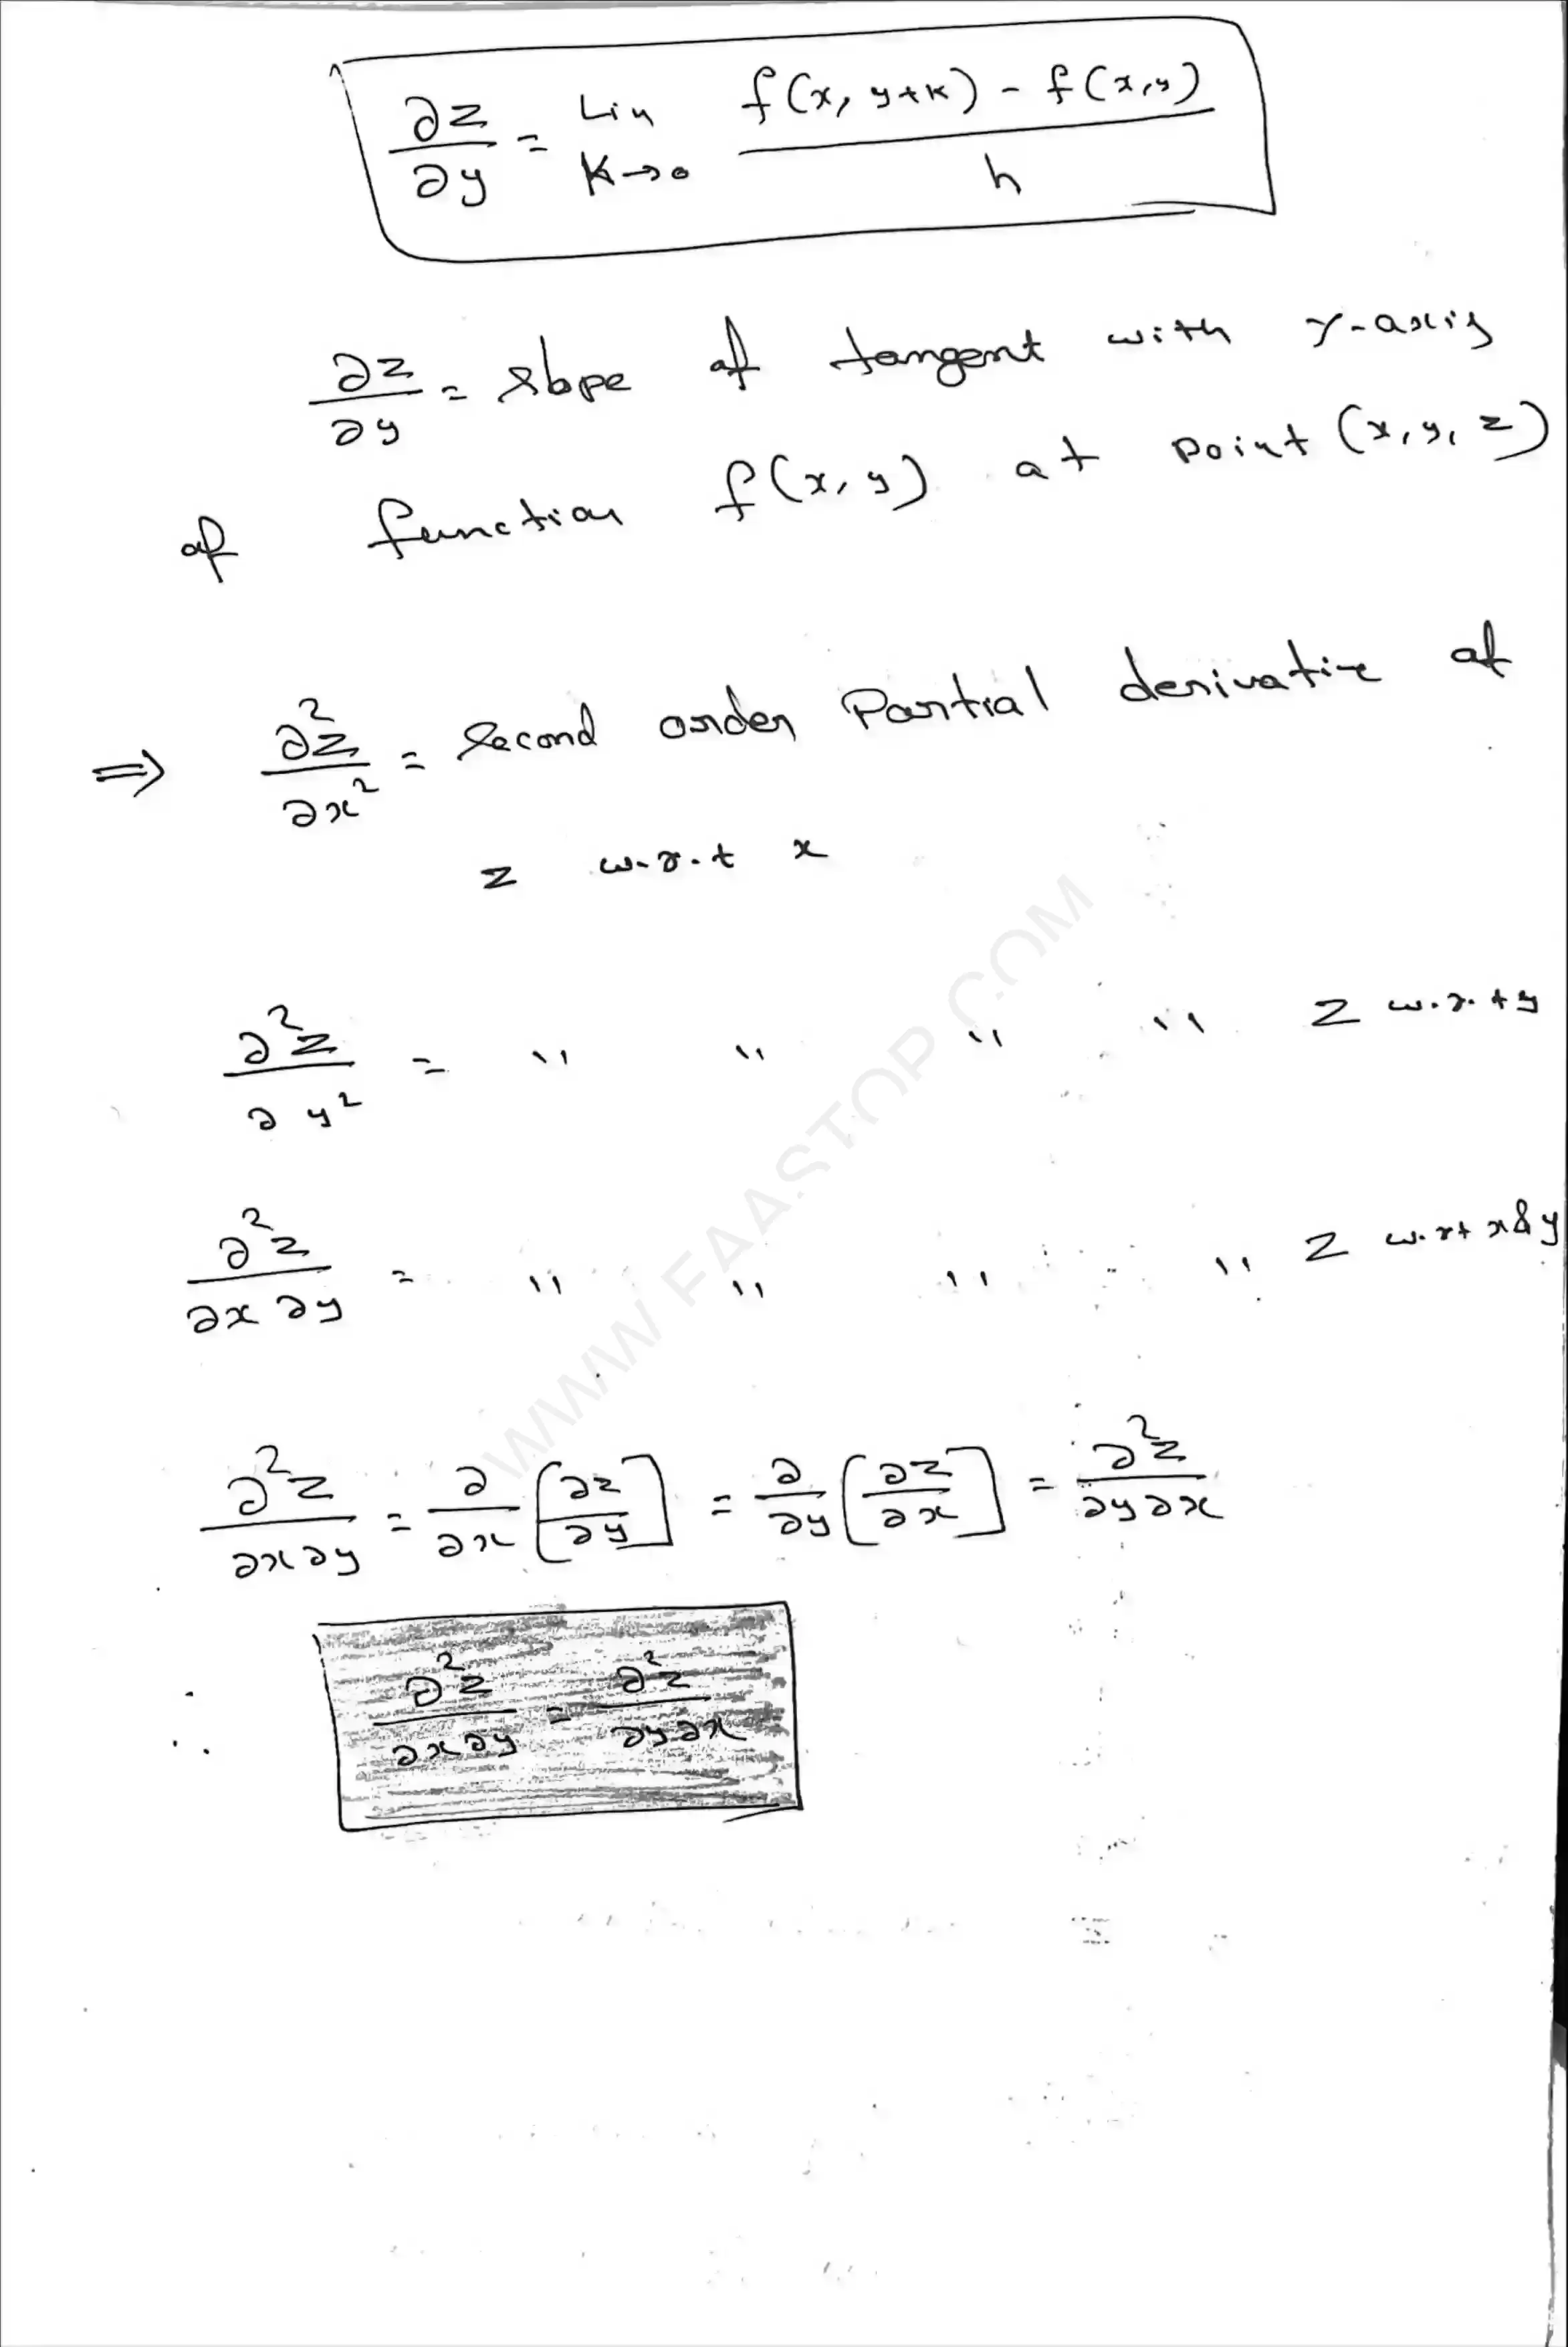 ∂z/∂y = Lim K→0 f(x, y+k) - f(x,y) / h
∂z/∂y = slope of tangent with Y-axis
of function f(x,y) at point (x,y,z)
⇒ ∂²z/∂x² = Second order Partial derivative of
z w.r.t x
∂²z/∂y² = '' '' '' '' z w.r.t y
∂²z/∂x∂y = '' '' '' '' z w.r.t x & y
∂²z/∂x∂y = ∂/∂x [∂z/∂y] = ∂/∂y [∂z/∂x] = ∂²z/∂y∂x
∴ ∂²z/∂x∂y = ∂²z/∂y∂x
WWW.FAASTOP.COM